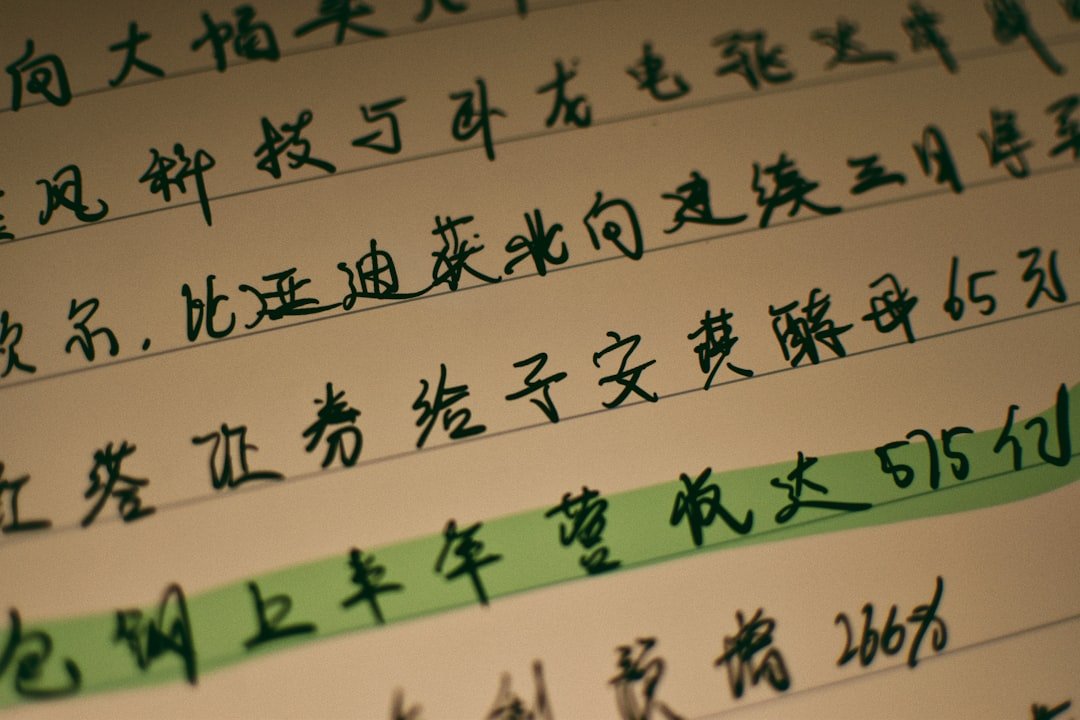 向大幅
风科技与卧龙电驱达成战
尔.比亚迪获北向连续三月净买
红塔证券给予安琪酵母65元
包钢上半年营收达575亿
制预增266%